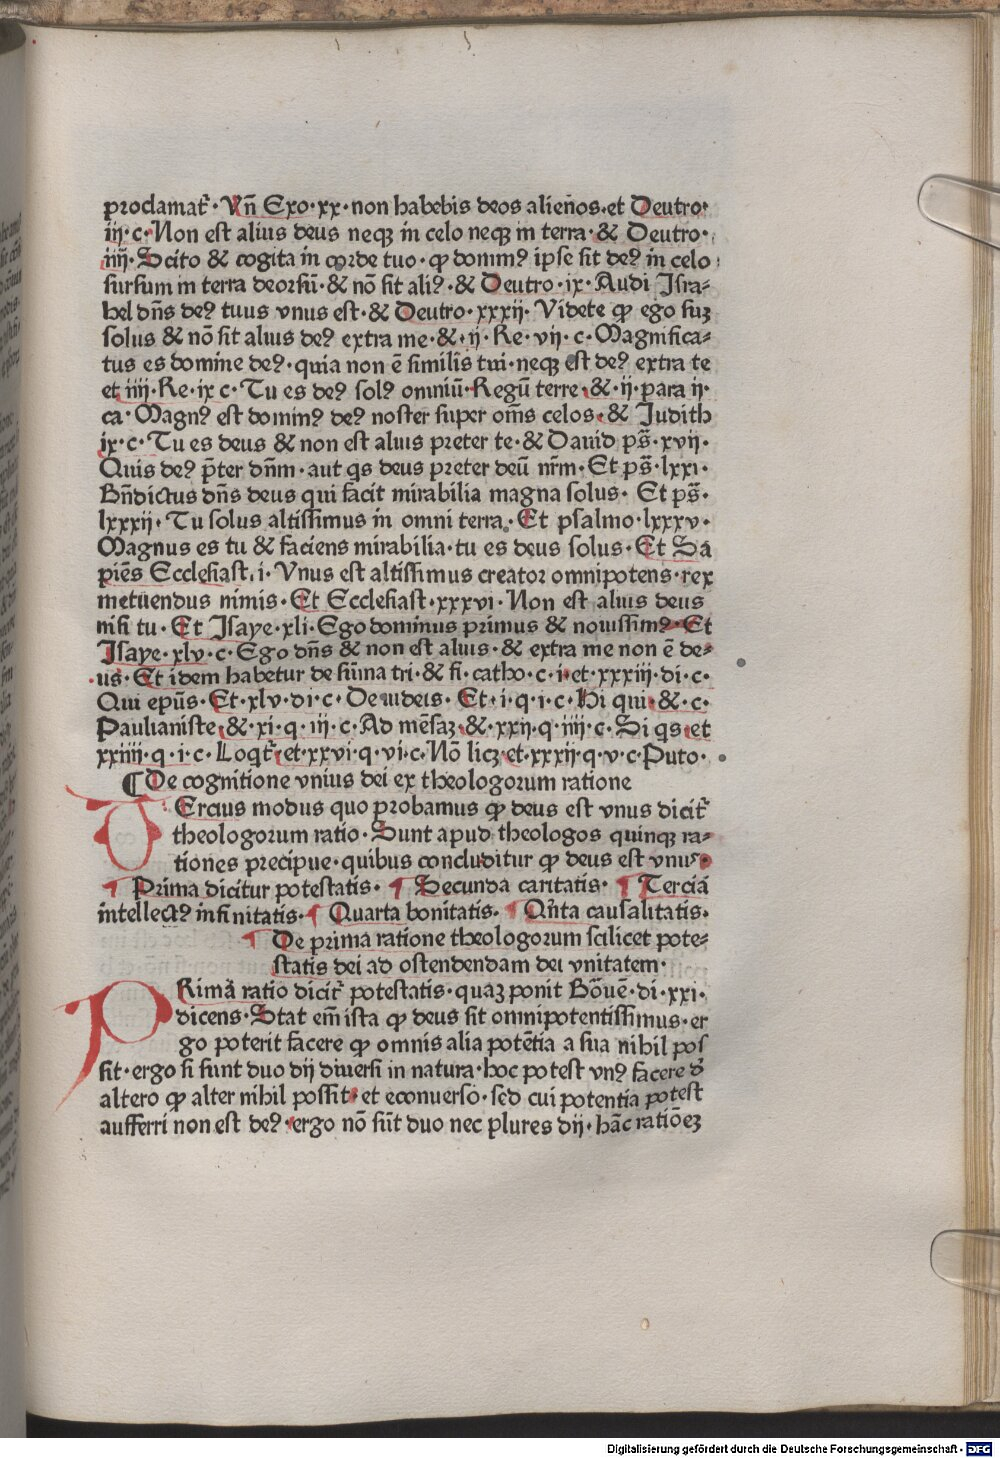 proclamat᷑· Vn̄ Exo·xx·non habebis deos alien̄os·et Deutro·
iij·c·Non est alius deus neqꝫ in celo neqꝫ in terra·& Deutro·
iiij·Scito & cogita in corde tuo·ꝙ domin9 ipse sit de9 in celo
sursum in terra deorsū·& nō sit ali9·& Deutro·ix·Audi Isra-
hel dn̄s de9 tuus vnus est·& Deutro·xxxij·Videte ꝙ ego suꝫ
solus & nō sit alius de9 extra me·&·ij·Re·vij·c·Magnifica-
tus es domine de9·quia non ē similis tui·neqꝫ est de9 extra te
et iiij·Re·ix c·Tu es de9 sol9 omniū·Regū terre·&·ij·para ij·
ca·Magn9 est domin9 de9 noster super om̄s celos·& Judith
ix·c·Tu es deus & non est alius preter te·& Dauid ps̄·xvij·
Quis de9 p̄ter dn̄m·aut qs deus preter deū nr̄m·Et ps̄·lxxi·
Bn̄dictus dn̄s deus qui facit mirabilia magna solus· Et ps̄·
lxxxij·Tu solus altissimus in omni terra·Et psalmo·lxxxv·
Magnus es tu & faciens mirabilia·tu es deus solus·Et Sa
piēs Ecclesiast·i·Vnus est altissimus creator omnipotens·rex
metuendus nimis·Et Ecclesiast·xxxvi·Non est alius deus
nisi tu·Et Isaye·xli·Ego dominus primus & nouissim9·Et
Isaye·xlv·c·Ego dn̄s & non est alius·& extra me non ē de-
us·Et idem habetur de sūma tri·& fi·catho·c·i·et·xxxiij·di·c·
Qui ep̄us·Et·xlv·di·c·De iudeis· Et·i·q·i·c·Hi qui·&·c·
Paulianiste·&·xi·q·iij·c·Ad mēsaꝫ·&·xxij·q·iiij·c·Si qs·et
xxiiij·q·i·c·Loqt᷑·et·xxvi·q·vi·c·Nō licꝫ·et·xxxij·q·v·c·Puto·
¶De cognitione vnius dei ex theologorum ratione
TErcius modus quo probamus ꝙ deus est vnus dicit᷑
theologorum ratio·Sunt apud theologos quinqꝫ ra-
tiones precipue·quibus concluditur ꝙ deus est vnus·
¶ Prima dicitur potestatis· ¶ Secunda caritatis· ¶ Tercia
intellect9 infinitatis·¶ Quarta bonitatis· ¶ Qn̄ta causalitatis·
¶ De prima ratione theologorum scilicet pote-
statis dei ad ostendendam dei vnitatem·
PRima ratio dicit᷑ potestatis·quaꝫ ponit Bōuē·di·xxi·
dicens·Stat em̄ ista ꝙ deus sit omnipotentissimus·er
go poterit facere ꝙ omnis alia potētia a sua nihil pos
sit·ergo si sunt duo dij diuersi in natura·hoc potest vn9 facere d̄
altero ꝙ alter nihil possit·et econuerso·sed cui potentia potest
aufferri non est de9·ergo nō sūt duo nec plures dij·hāc ratiōeꝫ
Digitalisierung gefördert durch die Deutsche Forschungsgemeinschaft · DFG